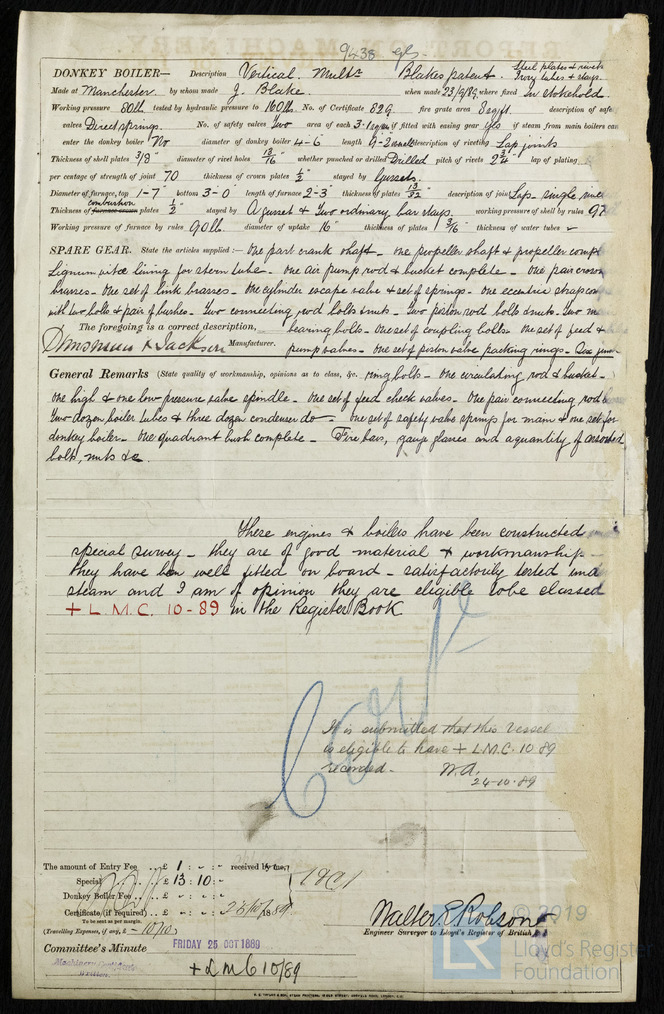 9438 gls
DONKEY BOILER— Description Vertical. Multr. Blakes patent. Steel plates & rivets Ivory tubes & stays.
Made at Manchester by whom made J. Blake. when made 23/9/89 where fixed In stokehold.
Working pressure 80 lb tested by hydraulic pressure to 160 lb No. of Certificate 829 fire grate area 8 sqft. description of safe
valves Direct springs. No. of safety valves Two area of each 3.1 sqin if fitted with easing gear yes if steam from main boilers can
enter the donkey boiler No diameter of donkey boiler 4-6 length 9-2 description of riveting Lap joints
Thickness of shell plates 3/8" diameter of rivet holes 13/16" whether punched or drilled Drilled pitch of rivets 2 1/4" lap of plating
per centage of strength of joint 70 thickness of crown plates 1/2" stayed by Gussets.
Diameter of furnace, top 1-7" bottom 3-0" length of furnace 2-3" thickness of plates 13/32" description of joint Lap- single
Thickness of furnace crown combustion plates 1/2" stayed by A gusset & two ordinary bar stays. working pressure of shell by rules 92
Working pressure of furnace by rules 90 lb. diameter of uptake 16" thickness of plates 1 3/16" thickness of water tubes
SPARE GEAR. State the articles supplied:— One part crank shaft - one propeller shaft & propeller compl
Lignum vitæ lining for stern tube - one air pump rod & bucket complete - One pair cross
brasses - One set of link brasses - One cylinder escape valve & set of springs - one eccentric strap com
with two bolts & pair of bushes - Two connecting rod bolts & nuts - Two piston rod bolts & nuts - Two m
The foregoing is a correct description, bearing bolts - One set of coupling bolts - One set of feed &
& Jackson Manufacturer. pump valves - One set of piston valve packing rings - Six
General Remarks (State quality of workmanship, opinions as to class, &c. ring bolts - One circulating rod & bucket -
One high & one low pressure valve spindle - One set of feed check valves - One pair connecting rod
Two dozen boiler tubes & three dozen condenser do - One set of safety valve springs for main & one set for
donkey boiler - One quadrant bush complete - Fire bars, gauge glasses and a quantity of assorted
bolts, nuts &c.
These engines & boilers have been constructed
special survey - they are of good material & workmanship -
they have been well fitted on board - satisfactorily tested und
steam and I am of opinion they are eligible to be classed
+ L.M.C. 10-89 in the Register Book
It is submitted that this Vessel
is eligible to have + L.M.C. 10 89
recorded.
W.A.
24-10-89
The amount of Entry Fee .. £ 1 : - : - received by me,
Special .. £ 13 : 10 : -
Donkey Boiler Fee .. £ - : - : -
Certificate (if required) .. £ - : - : - 18 89
To be sent as per margin.
(Travelling Expenses, if any, £ - 10/10)
Walter R. Robson
Engineer Surveyor to Lloyd's Register of British
Committee's Minute FRIDAY 25 OCT 1889
+ L M C 10/89
Machinery Certificate
Written.
© 2019
Lloyd's Register
Foundation
LR